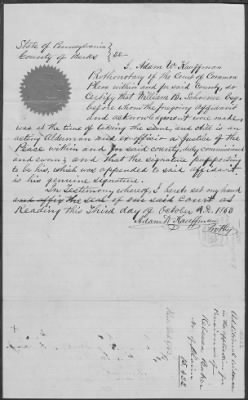 State of Pennsylvania }
County of Berks } SS
I, Adam W. Kauffman
Prothonotary of the Court of Common
Pleas within and for said County, do
Certify that William B. Schoener Esq.
before whom the foregoing affidavit
and acknowledgement were made
was at the time of taking the same, and still is an
acting Alderman and ex officio a Justice of the
Peace within and for said county, duly commissioned
and sworn; and that the signature purporting
to be his, which was appended to said affidavit,
is his genuine signature.
In Testimony whereof, I have set my hand
and affix the seal of our said Court at
Reading this Third day of October A.D. 1860
Adam W. Kauffman
Prothy
Additional evidence
in the application for